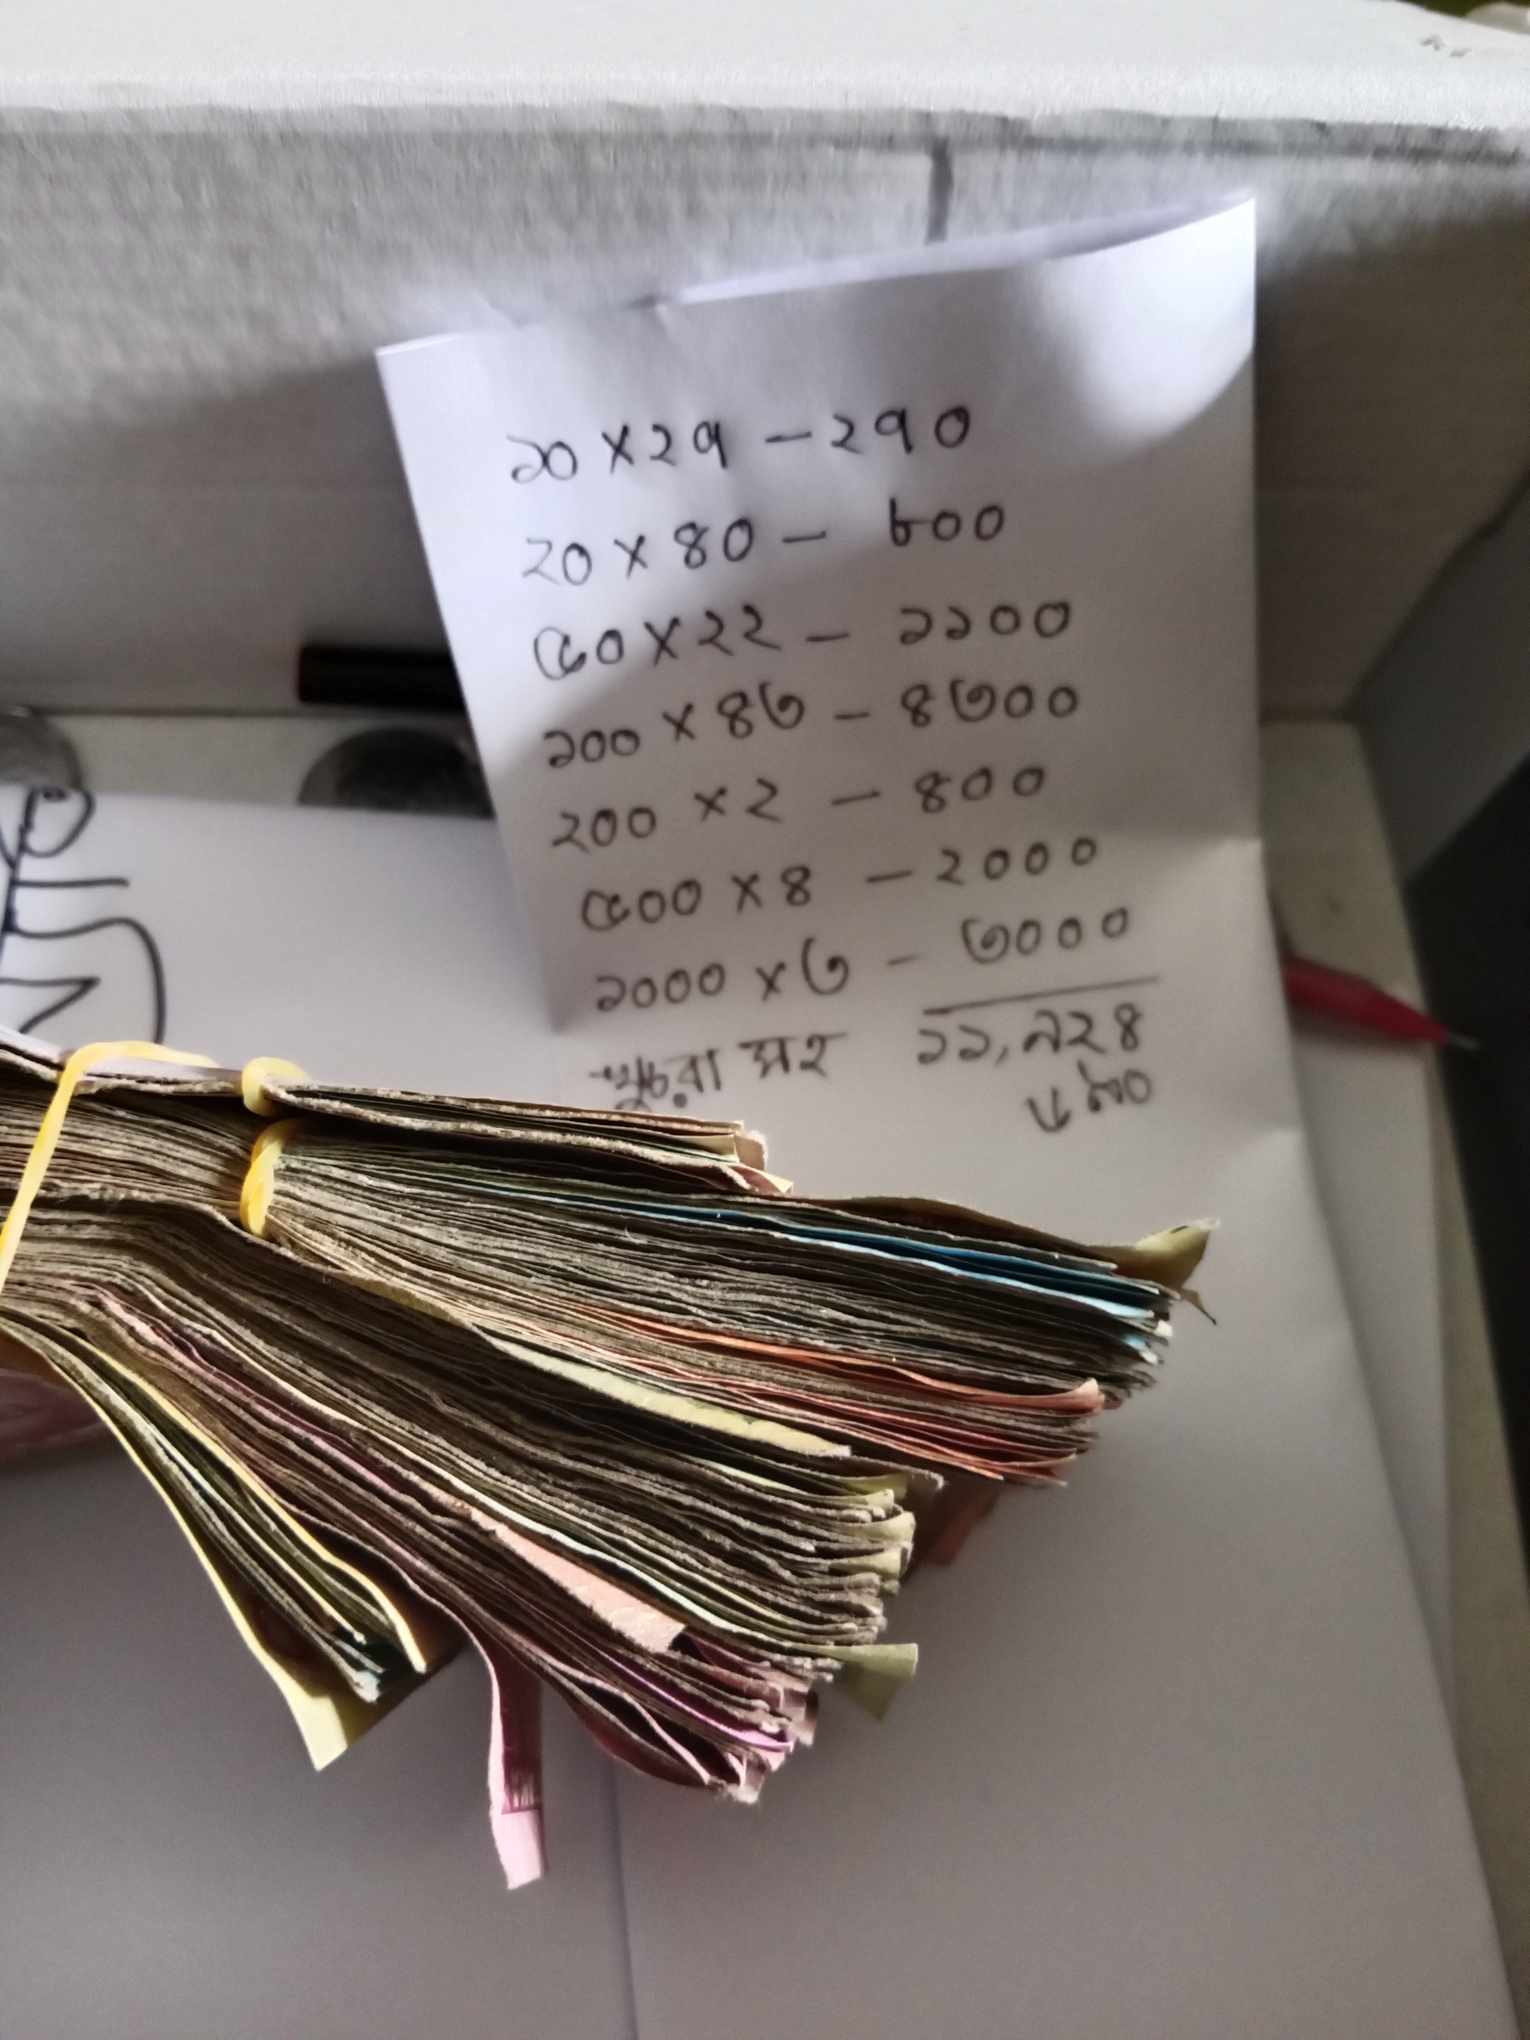 ১০ × ২৭ – ২৭০
২০ × ৪০ – ৮০০
৫০ × ২২ – ১১০০
১০০ × ৪৩ – ৪৩০০
২০০ × ২ – ৪০০
৫০০ × ৪ – ২০০০
১০০০ × ৩ – ৩০০০
খুচরা সহ ১১,৯২৪